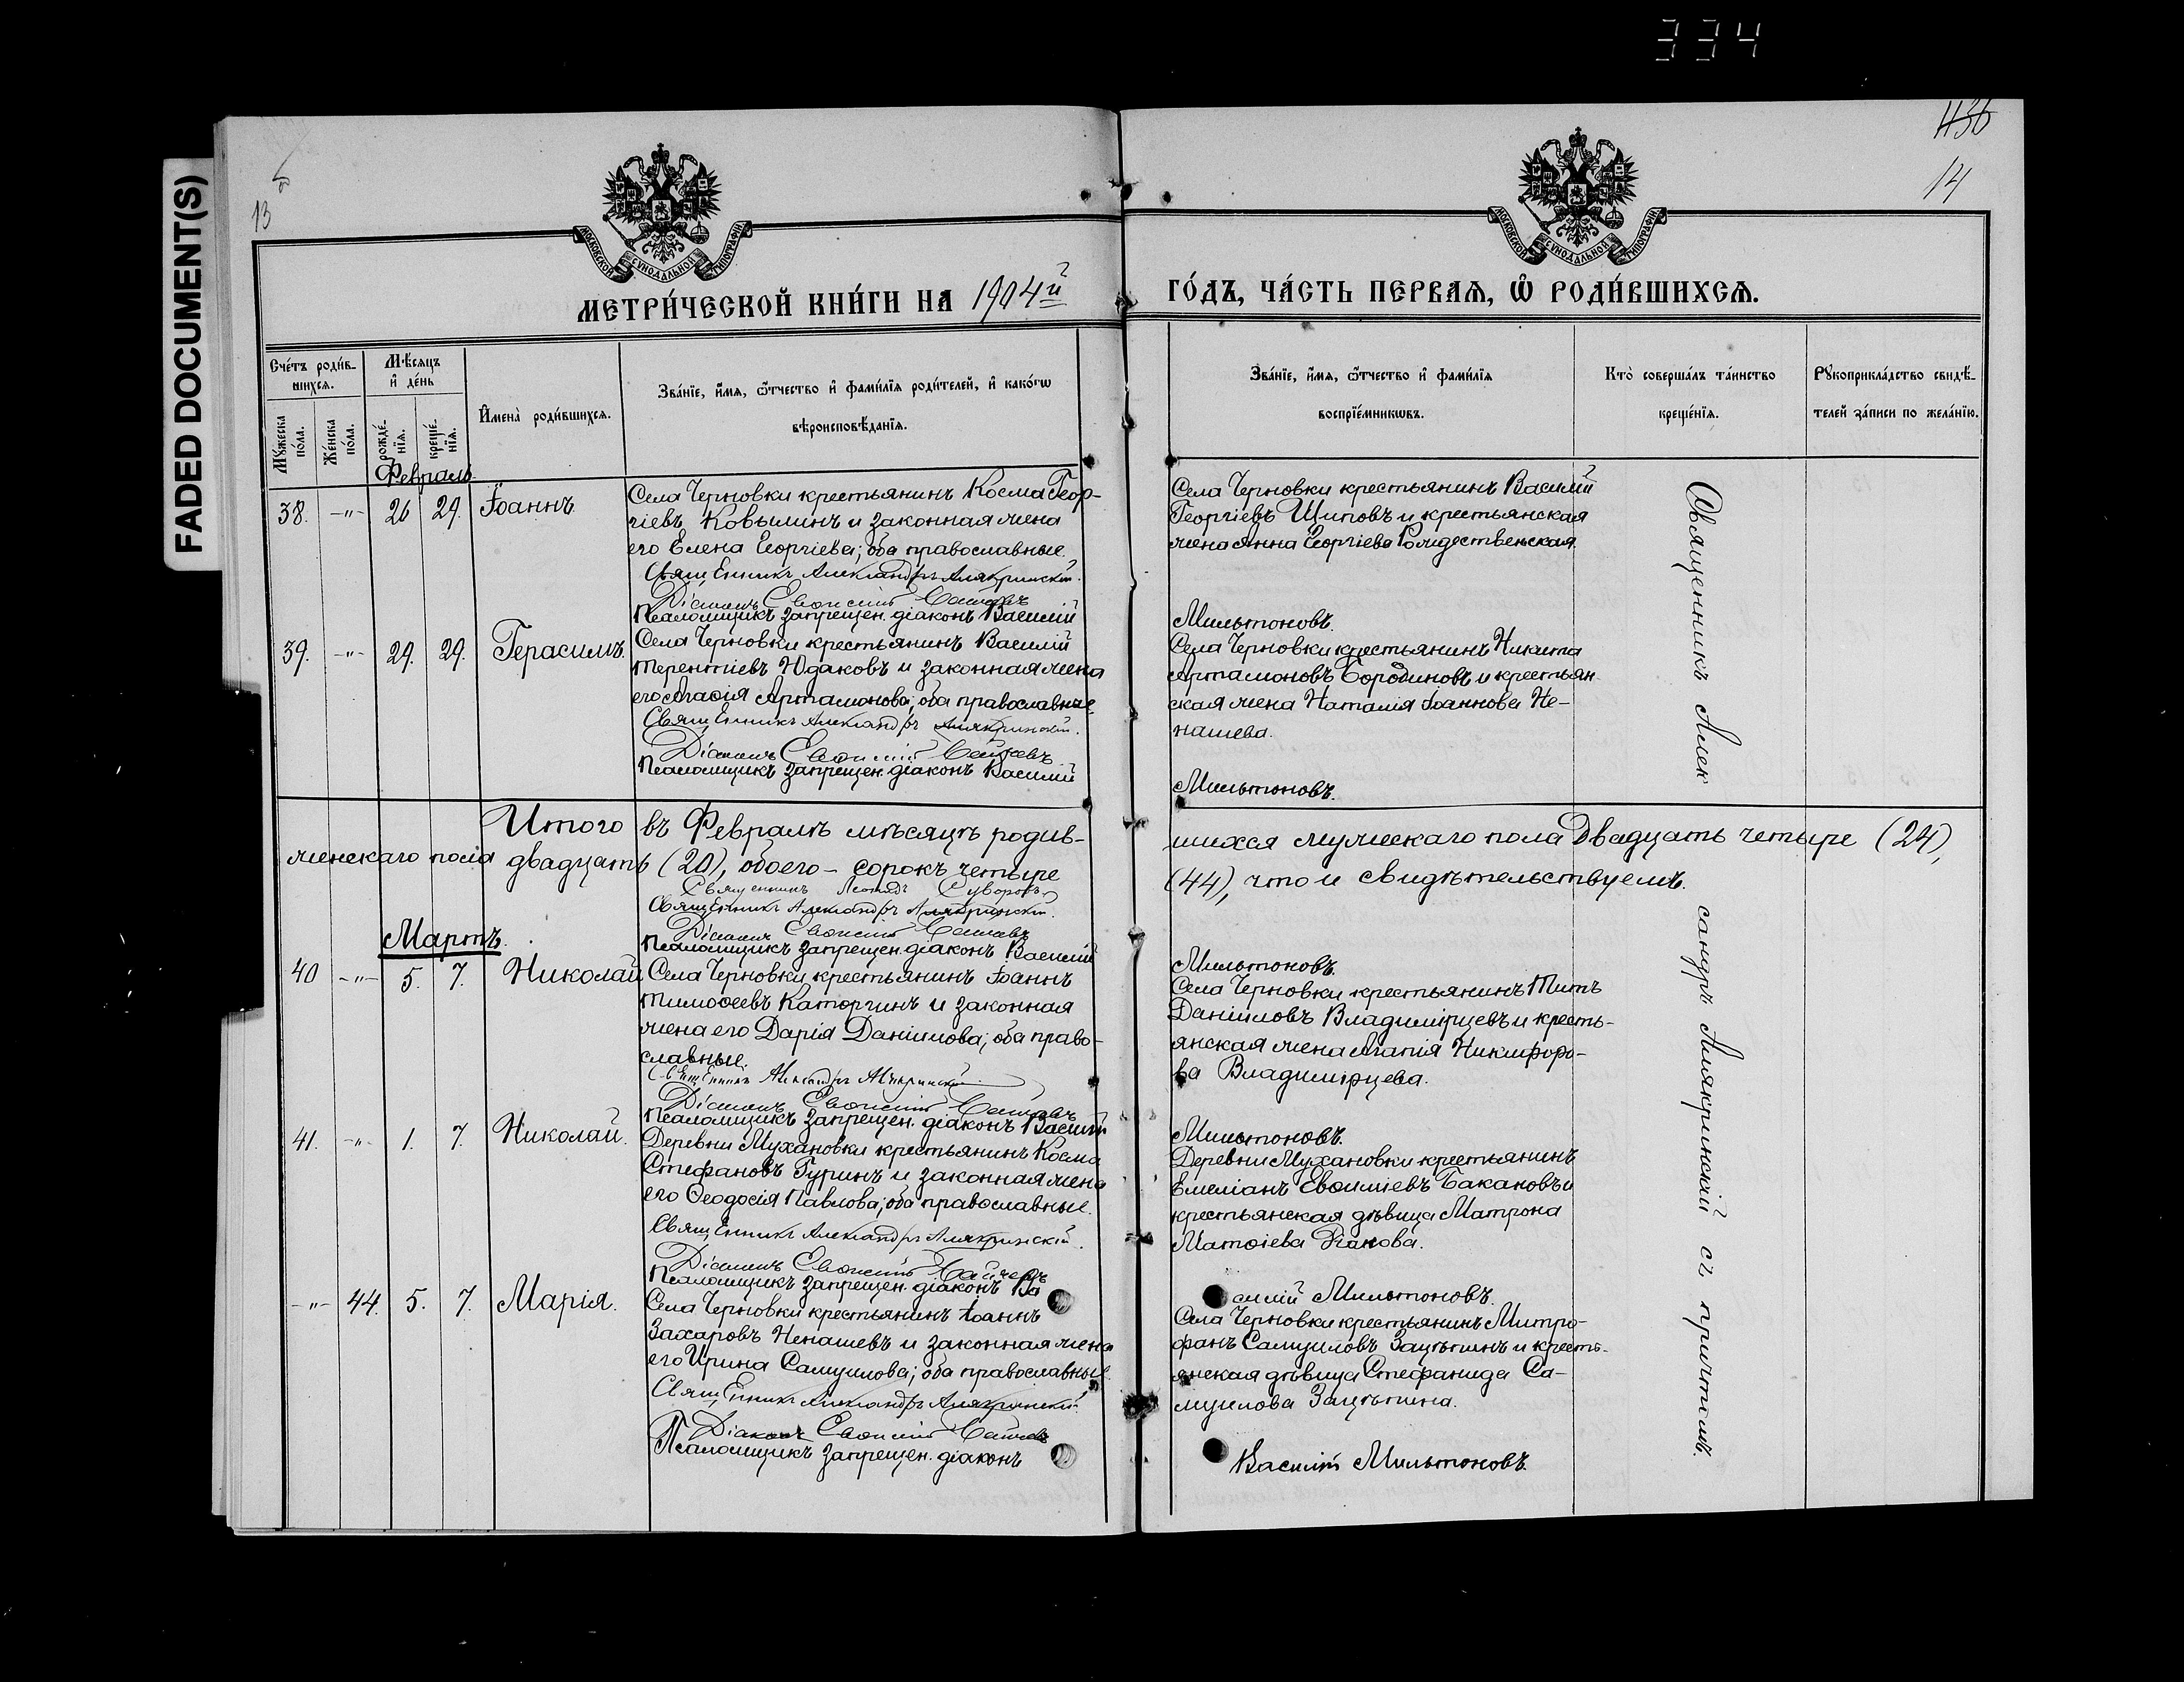 334
FADED DOCUMENT(S)
13
436
14
МОСКОВСКОЙ СѴНОДАЛЬНОЙ ТИПОГРАФІИ
МОСКОВСКОЙ СѴНОДАЛЬНОЙ ТИПОГРАФІИ
МЕТРИ́ЧЕСКОЙ КНИ́ГИ НА 1904й
ГО́ДЪ, ЧА́СТЬ ПЕРВАѦ, Ѡ҆ РОДИ́ВШИХСѦ.
Сче́тъ роди́в-
шихсѧ.
Мꙋ́жеска
по́ла.
Же́нска
по́ла.
Мѣ́сѧцъ
и҆ де́нь
рожде́-
нїѧ.
креще́-
нїѧ.
И҆мена̀ роди́вшихсѧ.
Зва́нїе, и҆́мѧ, ѻ҆́тчество и҆ фами́лїѧ роди́телей, и҆ како́гѡ
вѣроисповѣ́данїѧ.
Зва́нїе, и҆́мѧ, ѻ҆́тчество и҆ фами́лїѧ
воспрїе́мникѡвъ.
Кто̀ соверша́лъ та́инство
креще́нїѧ.
Рꙋкоприкла́дство свидѣ́-
телей за́писи по жела́нїю.
Февраль
38. -"- 26 29. Іоаннъ
Села Черновки крестьянинъ Косма Геор-
гіевъ Ковылинъ и законная жена
его Елена Георгіева; оба православные.
Священникъ Александръ Алякринскій.
Діаконъ Евѳимій
Псаломщикъ запрещен. діаконъ Василій
Села Черновки крестьянинъ Василій
Георгіевъ Щиповъ и крестьянская
жена Анна Георгіева Рождественская.
Мильтоновъ.
39. -"- 29. 29. Герасимъ.
Села Черновки крестьянинъ Василій
Терентіевъ Юдаковъ и законная жена
его Агафія Артамонова; оба православные.
Священникъ Александръ Алякринскій.
Діаконъ Евѳимій
Псаломщикъ запрещен. діаконъ Василій
Села Черновки крестьянинъ Никита
Артамоновъ Бородиновъ и крестьян-
ская жена Наталія Іоаннова Не-
нашева.
Мильтоновъ.
Итого въ Февралѣ мѣсяцѣ родив-
шихся мужескаго пола двадцать четыре (24),
женскаго пола двадцать (20), обоего - сорокъ четыре
(44), что и свидѣтельствуемъ.
Священникъ Леонидъ Суворовъ
Священникъ Александръ Алякринскій.
Діаконъ Евѳимій
Псаломщикъ запрещен. діаконъ Василій
Мильтоновъ.
Мартъ.
40 -"- 5. 7. Николай
Села Черновки крестьянинъ Іоаннъ
Тимоѳеевъ Каторгинъ и законная
жена его Дарія Даніилова; оба право-
славные.
Священникъ Александръ Алякринскій
Діаконъ Евѳимій
Псаломщикъ запрещен. діаконъ Василій
Села Черновки крестьянинъ Титъ
Даніиловъ Владимірцевъ и кресть-
янская жена Агапія Никифоро-
ва Владимірцева.
Мильтоновъ.
41. -"- 1. 7. Николай.
Деревни Мухановки крестьянинъ Косма
Стефановъ Гуринъ и законная жена
его Ѳеодосія Павлова; оба православные.
Священникъ Александръ Алякринскій.
Діаконъ Евѳимій
Псаломщикъ запрещен. діаконъ Ва
Деревни Мухановки крестьянинъ
Емеліанъ Евѳиміевъ Бакановъ и
крестьянская дѣвица Матрона
Матѳіева
силій Мильтоновъ.
-"- 44. 5. 7. Марія.
Села Черновки крестьянинъ Іоаннъ
Захаровъ Ненашевъ и законная жена
его Ирина Самуилова; оба православные.
Священникъ Александръ Алякринскій
Діаконъ Евѳимій
Псаломщикъ запрещен. діаконъ
Села Черновки крестьянинъ Митро-
фанъ Самуиловъ Зацѣпинъ и кресть-
янская дѣвица Стефанида Са-
муилова Зацѣпина.
Василій Мильтоновъ.
Священникъ Алек
сандръ Алякринскій съ причтомъ.